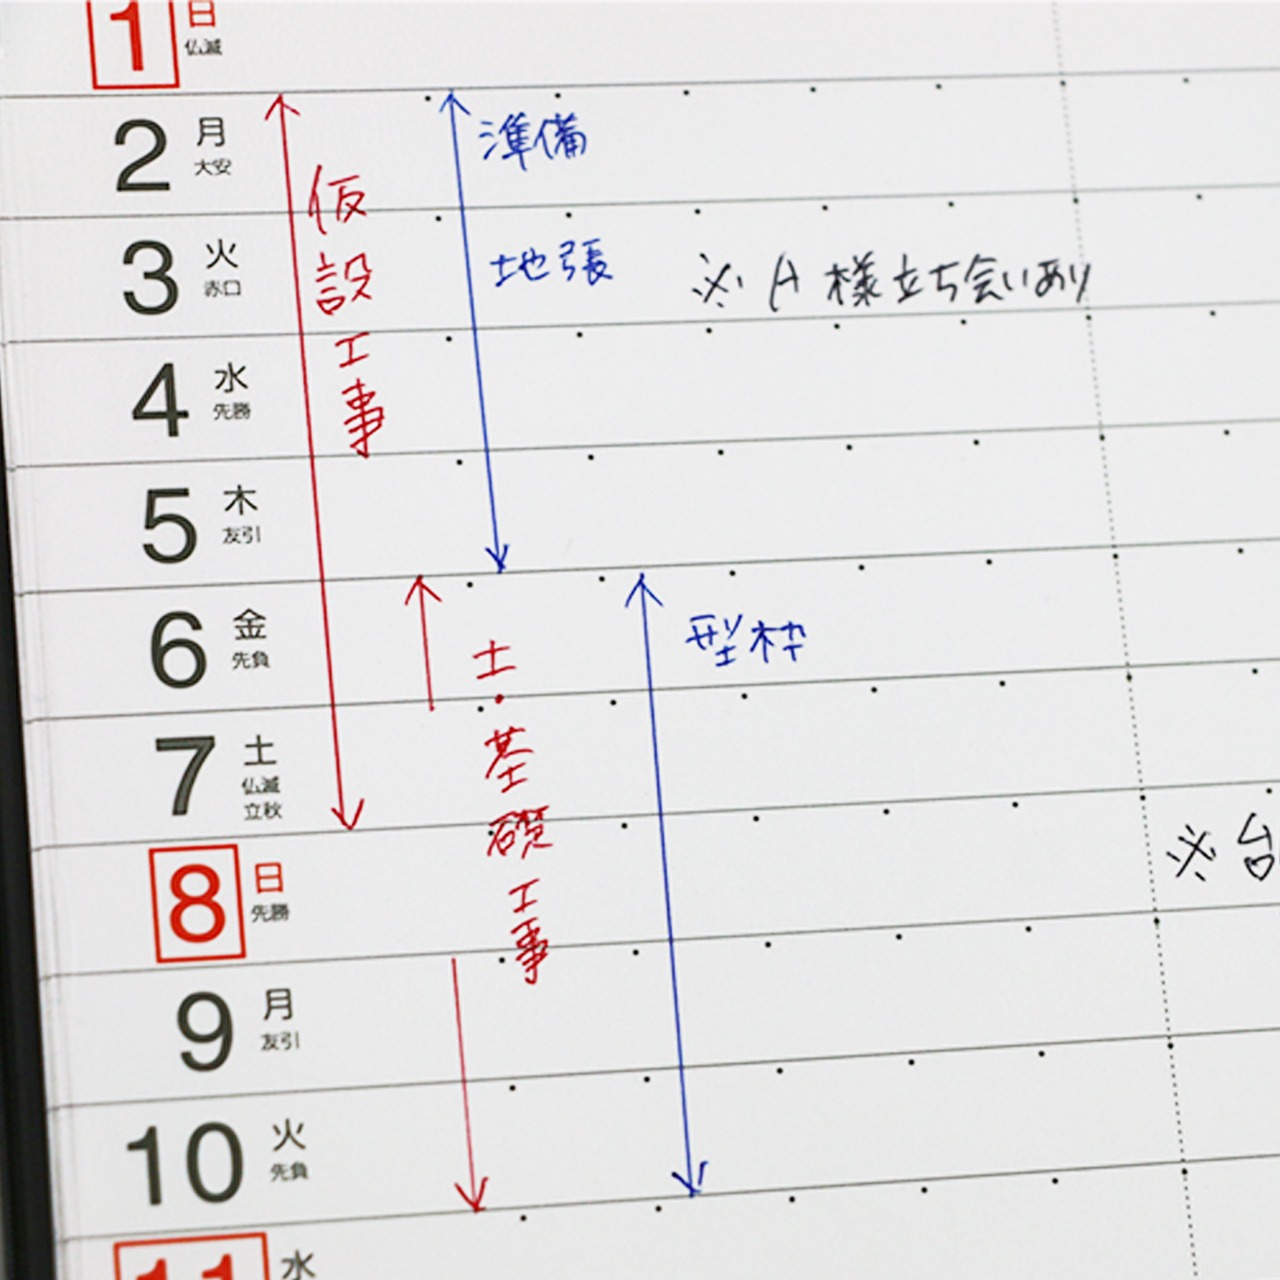 1 日 仏滅
2 月 大安
仮設工事
準備
3 火 赤口
地張 ※A様立ち会いあり
4 水 先勝
5 木 友引
6 金 先負
土・基礎工事
型枠
7 土 仏滅 立秋
8 日 先勝
※台
9 月 友引
10 火 先負
11 水